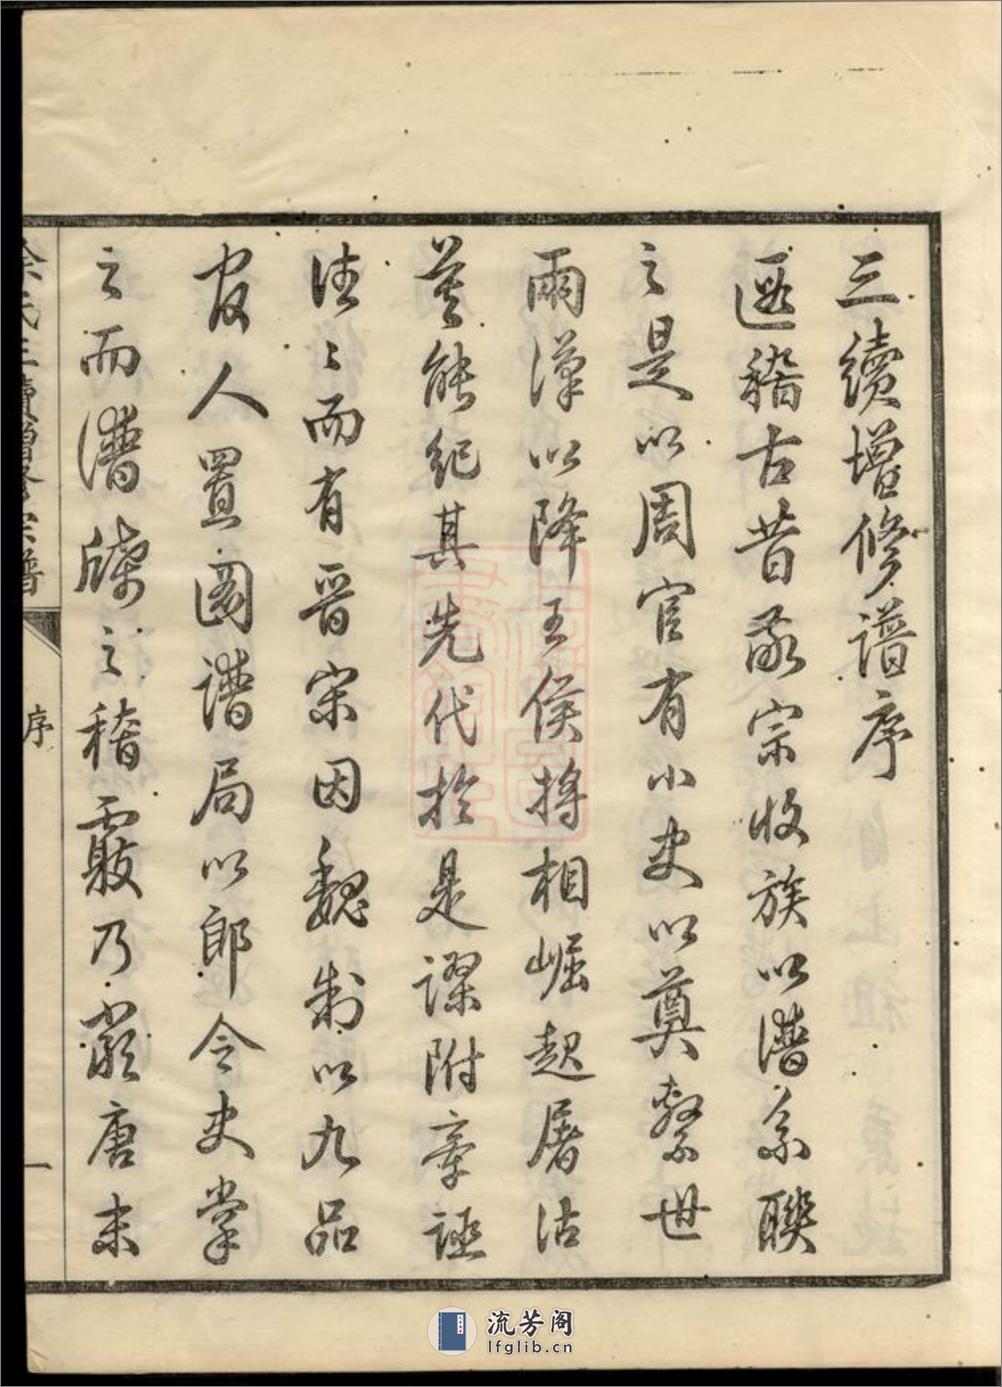 三續增修譜序
遐稽古昔敬宗收族以譜系聯
之是以周官有小史以奠繫世
兩漢以降王侯將相崛起屠沽
莫能紀其先代於是謬附牽誣
往往而有晉宋因魏制以九品
官人置圖譜局以郎令史掌
之而譜牒之稽覈乃嚴唐末
余氏三續增修宗譜
序
一
流芳阁
lfglib.cn